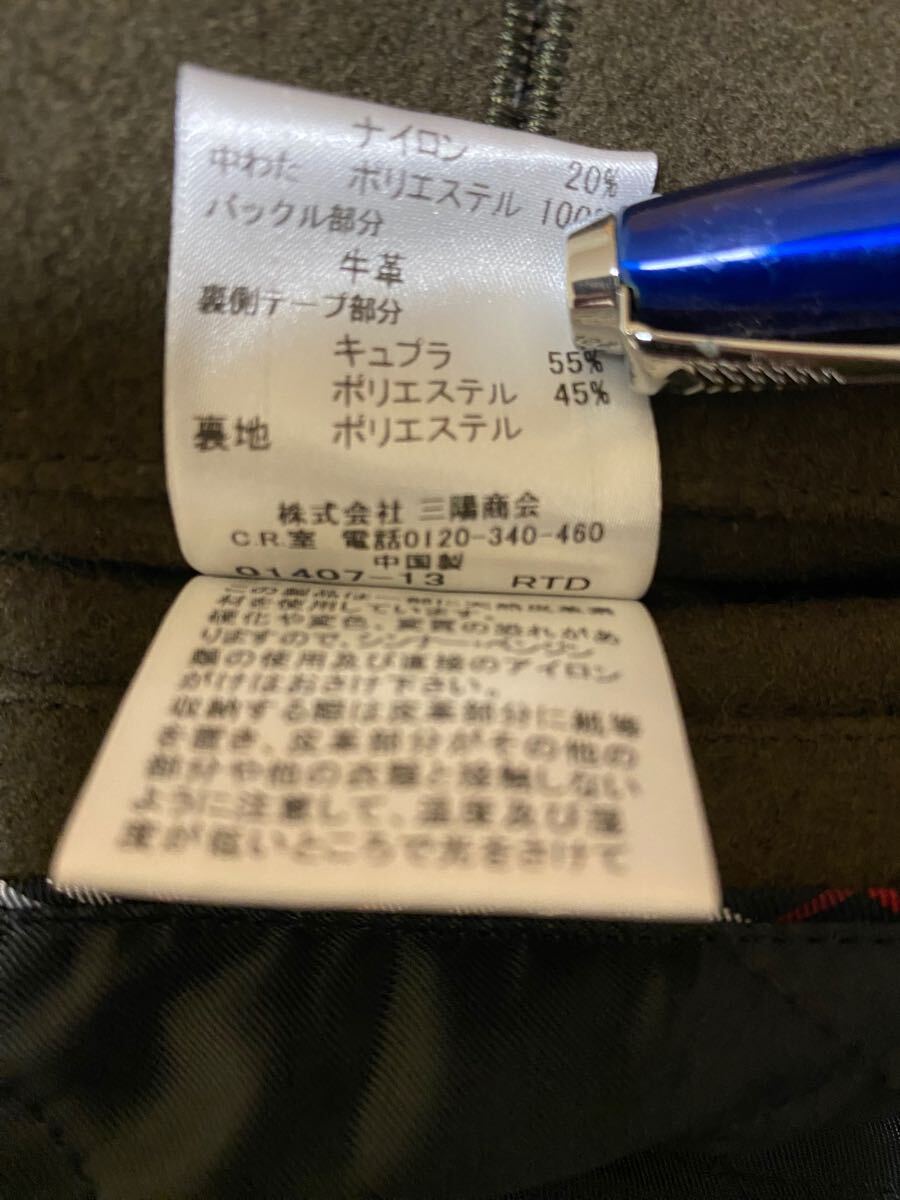 ナイロン 20%
中わた ポリエステル 100%
バックル部分
牛革
裏側テープ部分
キュプラ 55%
ポリエステル 45%
裏地 ポリエステル
株式会社 三陽商会
C.R.室 電話0120-340-460
中国製
01407-13 RTD
この製品は一部に天然皮革素
材を使用しています。
硬化や変色、変質の恐れがあ
りますので、シンナー・ベンジン
類の使用及び直接のアイロン
がけはおさけ下さい。
収納する際は皮革部分に紙等
を置き、皮革部分がその他の
部分や他の衣類と接触しない
ように注意して、温度及び湿
度が低いところで光をさけて